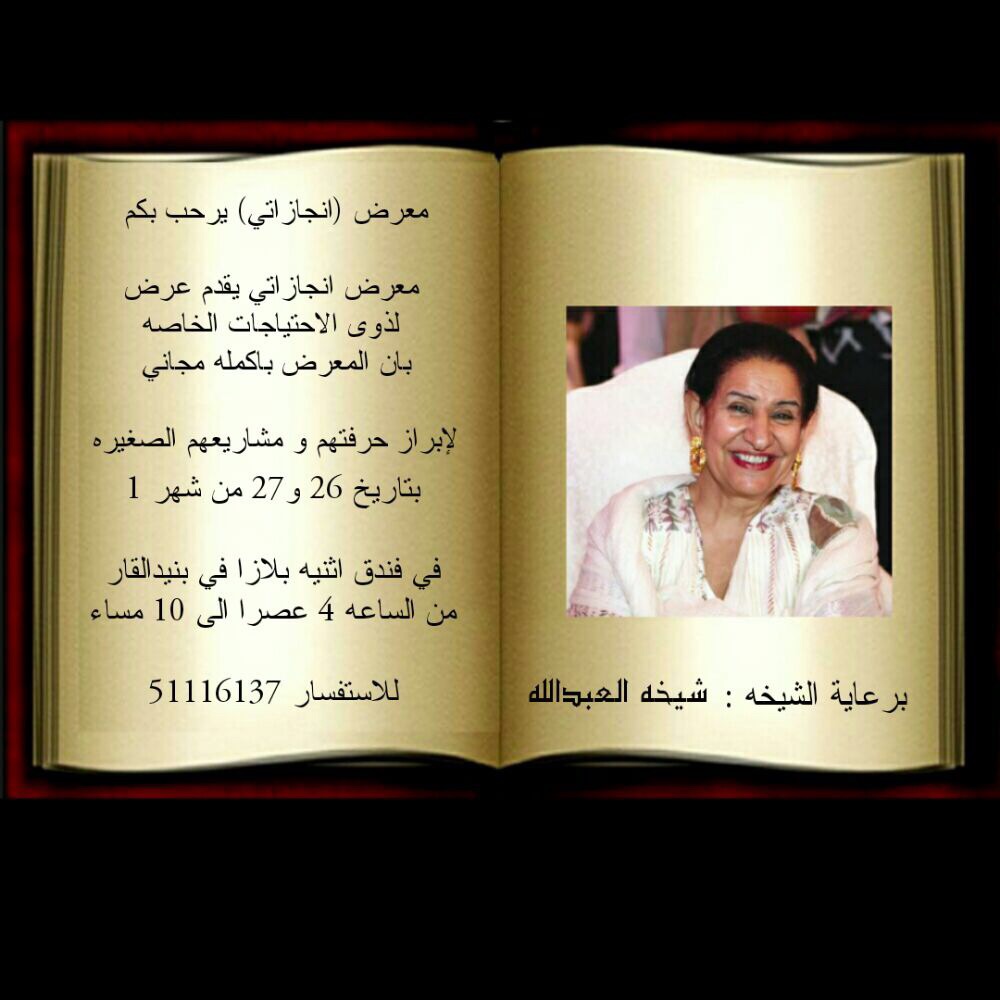 معرض (انجازاتي) يرحب بكم
معرض انجازاتي يقدم عرض
لذوى الاحتياجات الخاصه
بان المعرض باكمله مجاني
لإبراز حرفتهم و مشاريعهم الصغيره
بتاريخ 26 و27 من شهر 1
في فندق اثنيه بلازا في بنيدالقار
من الساعه 4 عصرا الى 10 مساء
للاستفسار 51116137
برعاية الشيخه : شيخه العبدالله